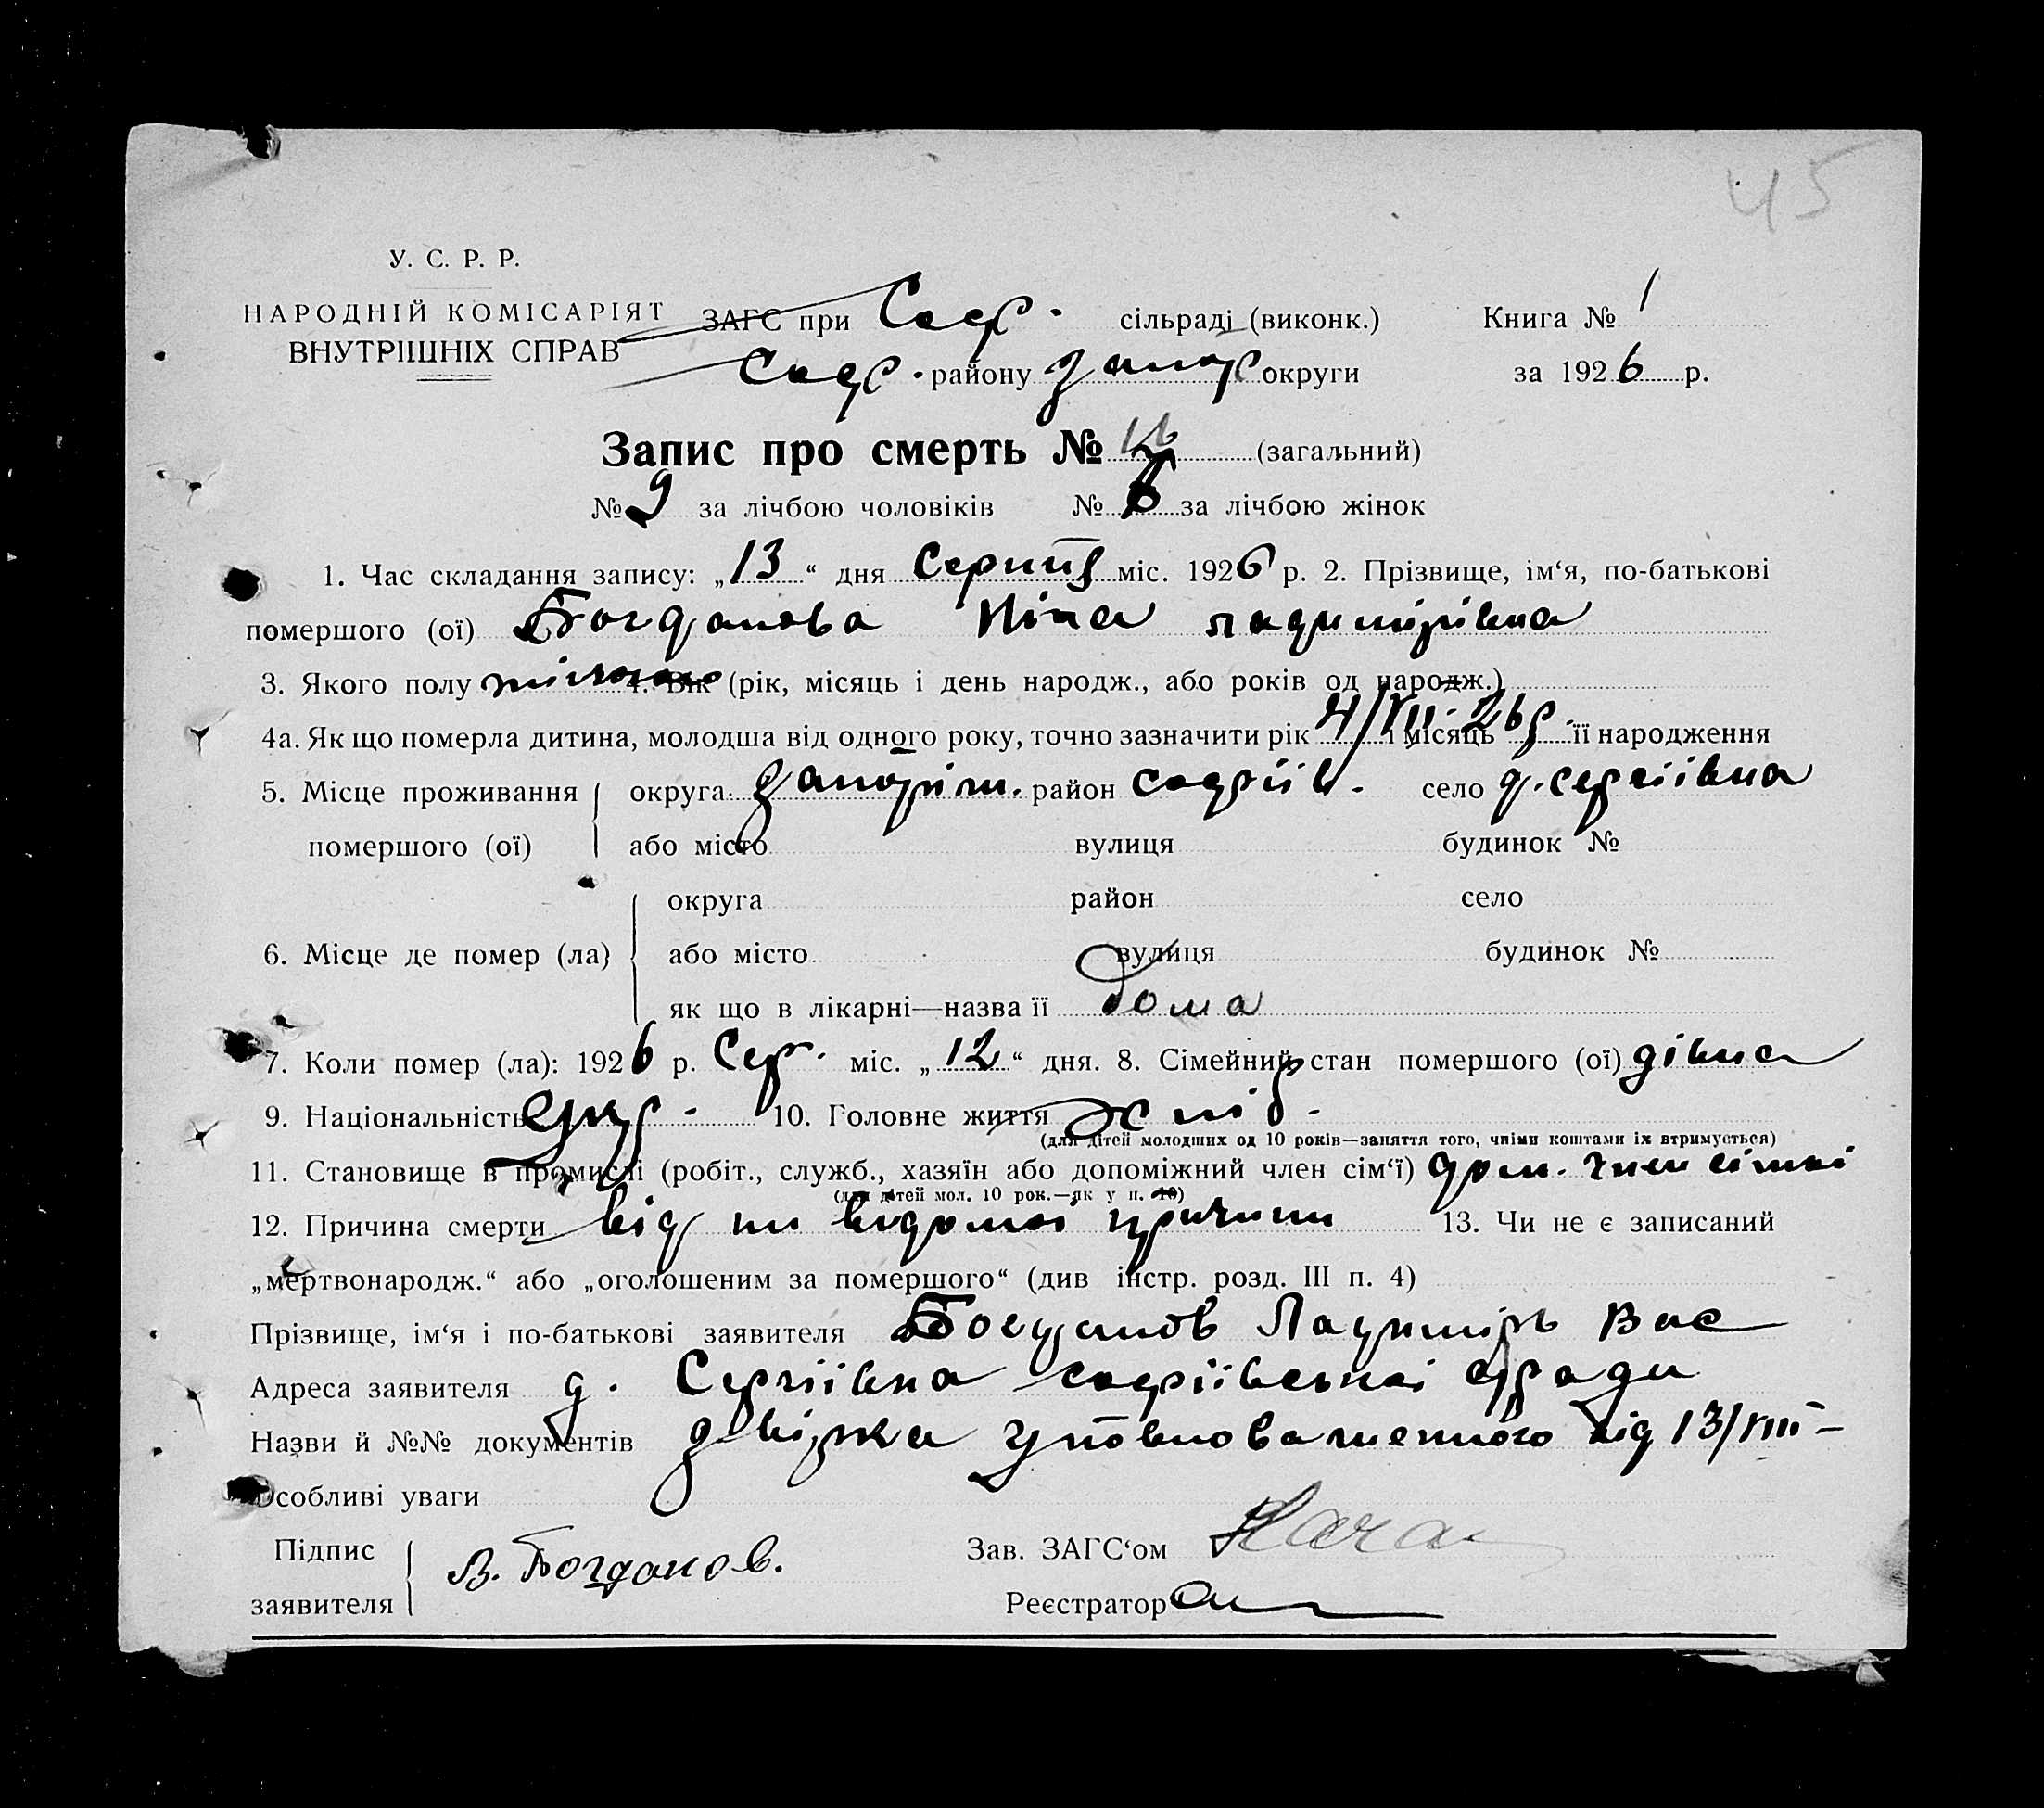 45
У. С. Р. Р.
НАРОДНІЙ КОМІСАРІЯТ
ВНУТРІШНІХ СПРАВ
ЗАГС при Соф. сільраді (виконк.) Книга № 1
Соф. району Запор округи за 1926 р.
Запис про смерть № (загальний)
№ 9 за лічбою чоловіків № за лічбою жінок
1. Час складання запису: „13“ дня Серпня міс. 1926 р. 2. Прізвище, ім‘я, по-батькові
помершого (ої) Богданова Ніна ладимірівна
3. Якого полу жіночо 4. Вік (рік, місяць і день народж., або років од народж.)
4а. Як що померла дитина, молодша від одного року, точно зазначити рік 4/VII-26р. і місяць її народження
5. Місце проживання округа Запоріж. район Софіїв. село д. Сергіівка
помершого (ої) або місто вулиця будинок №
округа район село
6. Місце де помер (ла) або місто вулиця будинок №
як що в лікарні—назва її дома
7. Коли помер (ла): 1926 р. Сер. міс. „12“ дня. 8. Сімейний стан помершого (ої) дівка
9. Національність укр. 10. Головне життя хліб.
(для дітей молодших од 10 років—заняття того, чиїми коштами їх втримується)
11. Становище в промислі (робіт., служб., хазяїн або допоміжний член сім‘ї) доп. член сімі
(для дітей мол. 10 рок.—як у п. 10)
12. Причина смерти від ни відомоі причини 13. Чи не є записаний
„мертвонародж.“ або „оголошеним за помершого“ (див інстр. розд. III п. 4)
Прізвище, ім‘я і по-батькові заявителя Богданов Ладимірь Вас
Адреса заявителя д. Сергіівка софіівськоі с/ради
Назви й №№ документів Довірка уповноваженного від 13/VIII-
Особливі уваги
Підпис заявителя В. Богданов. Зав. ЗАГС‘ом
Реєстратор